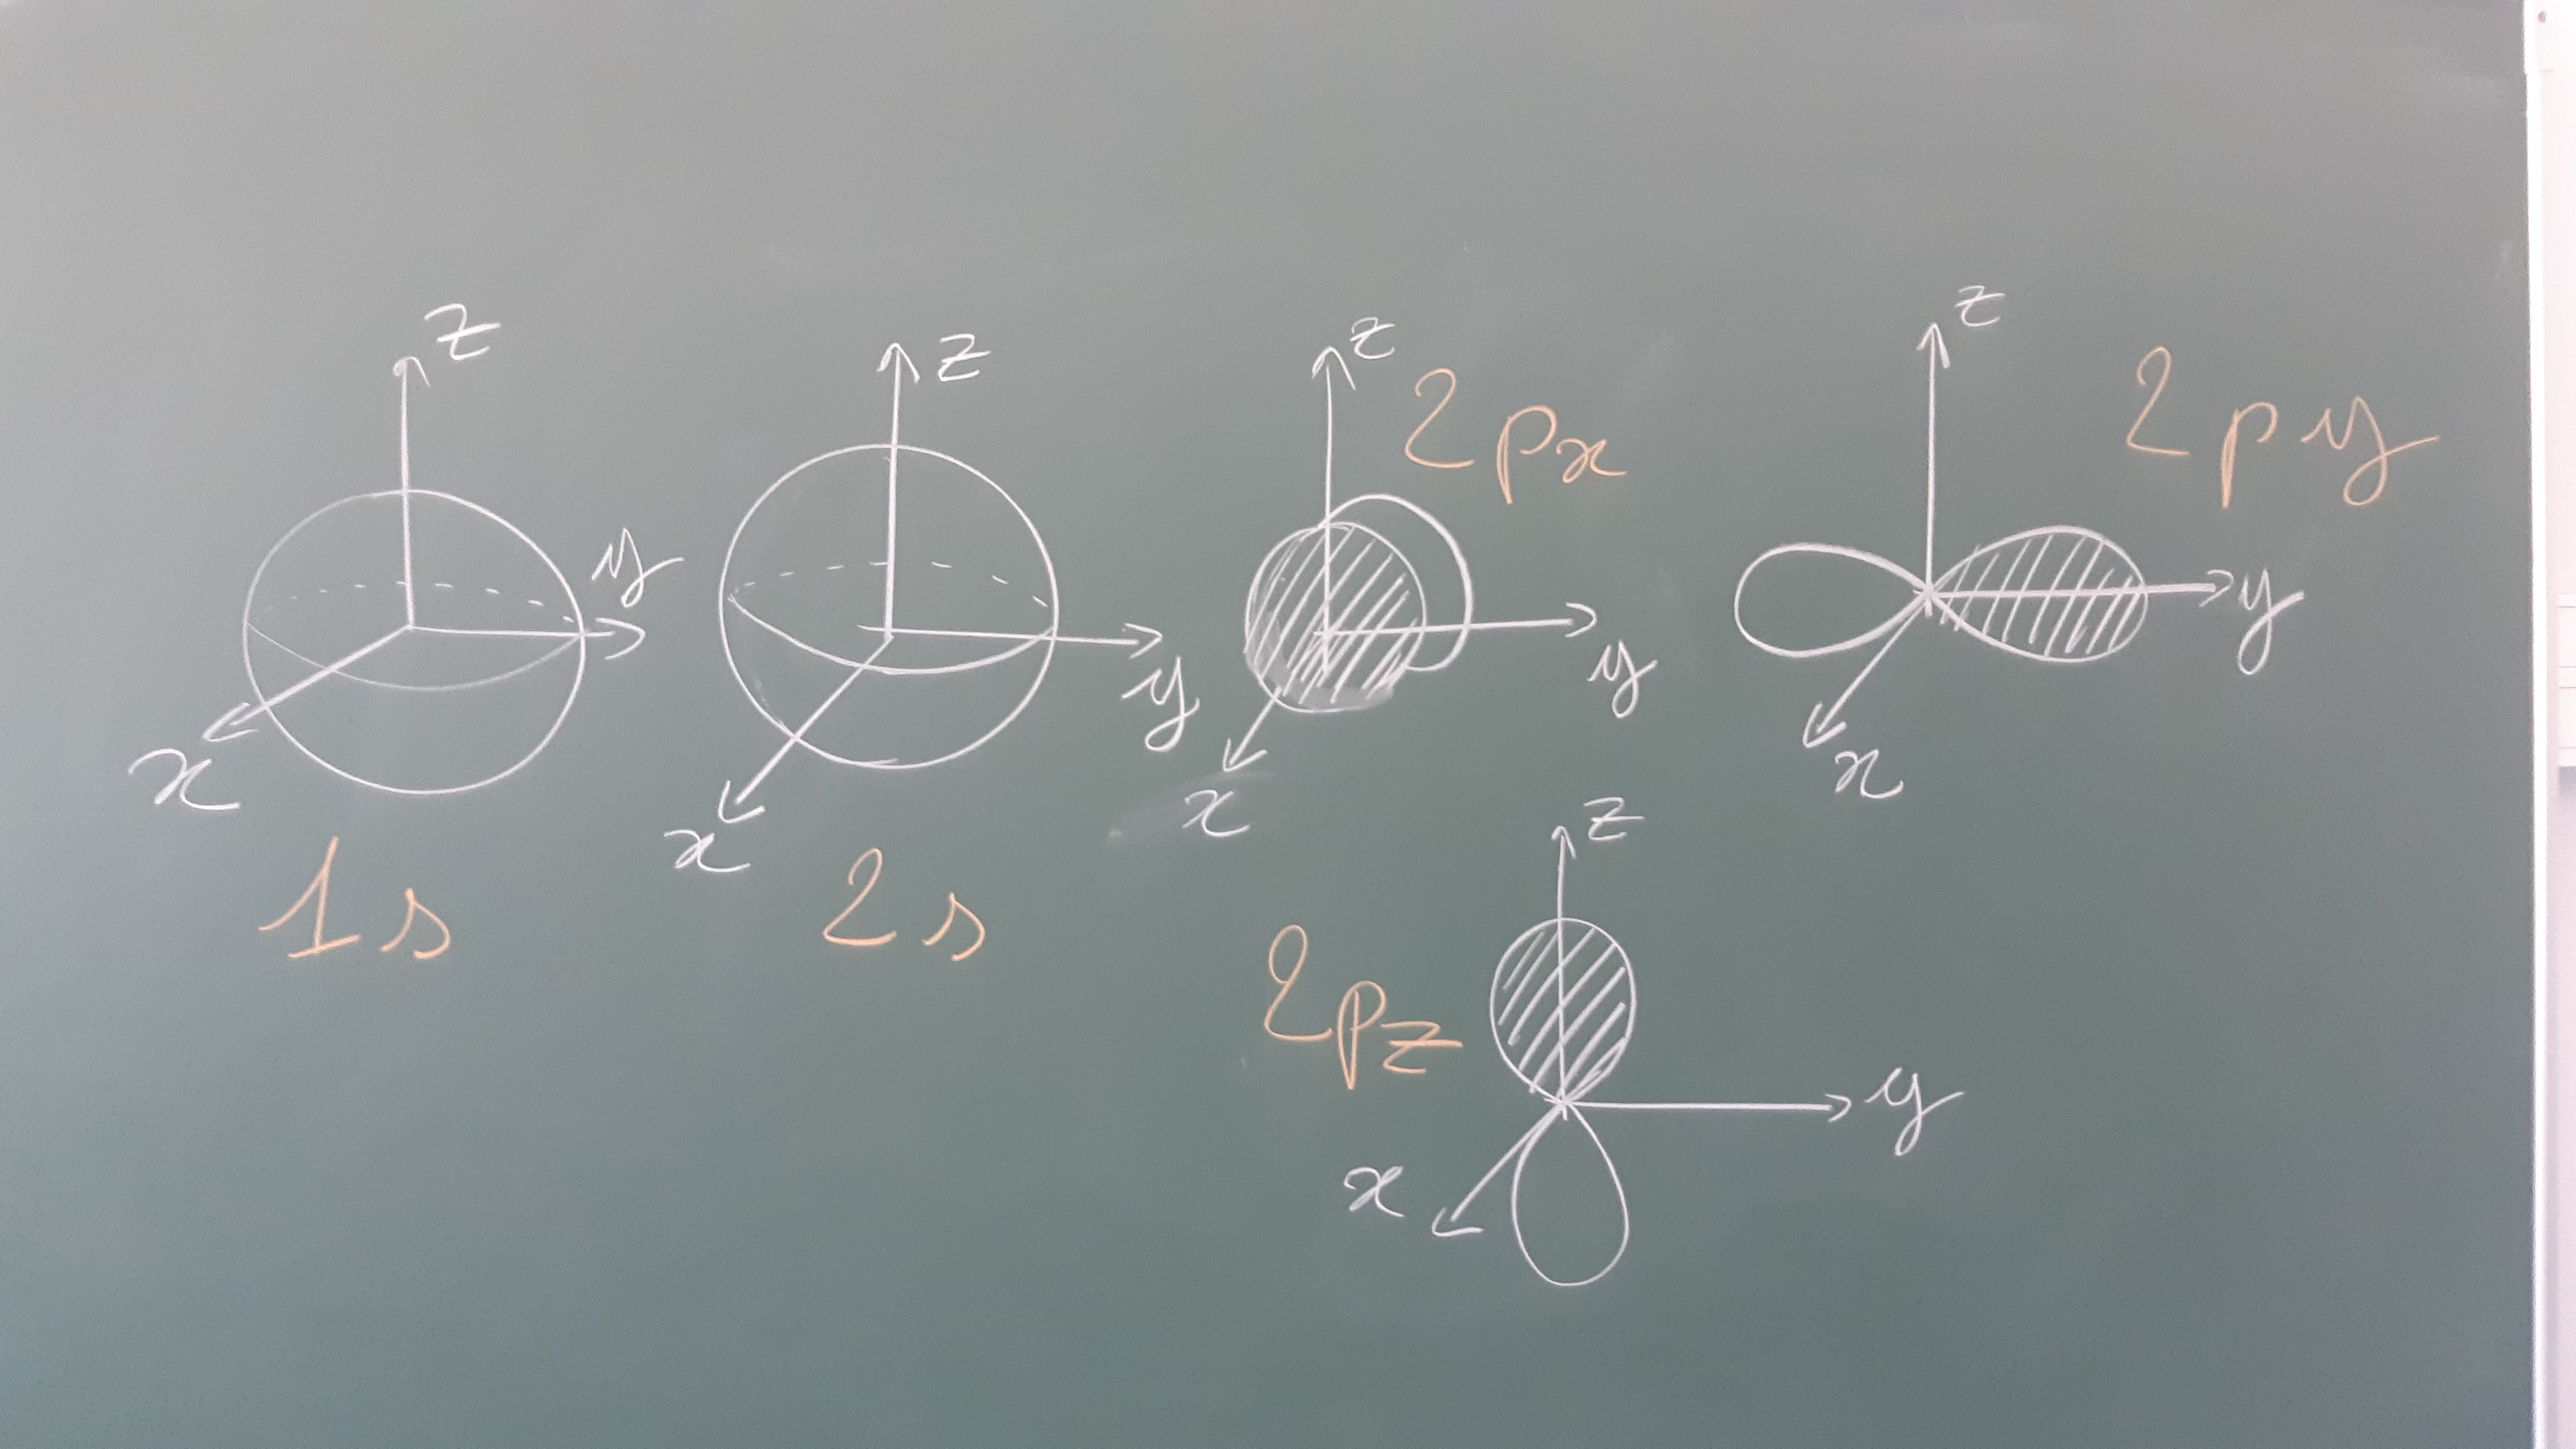 z
y
x
1s
z
y
x
2s
z
2px
y
x
z
2py
y
x
z
2pz
y
x